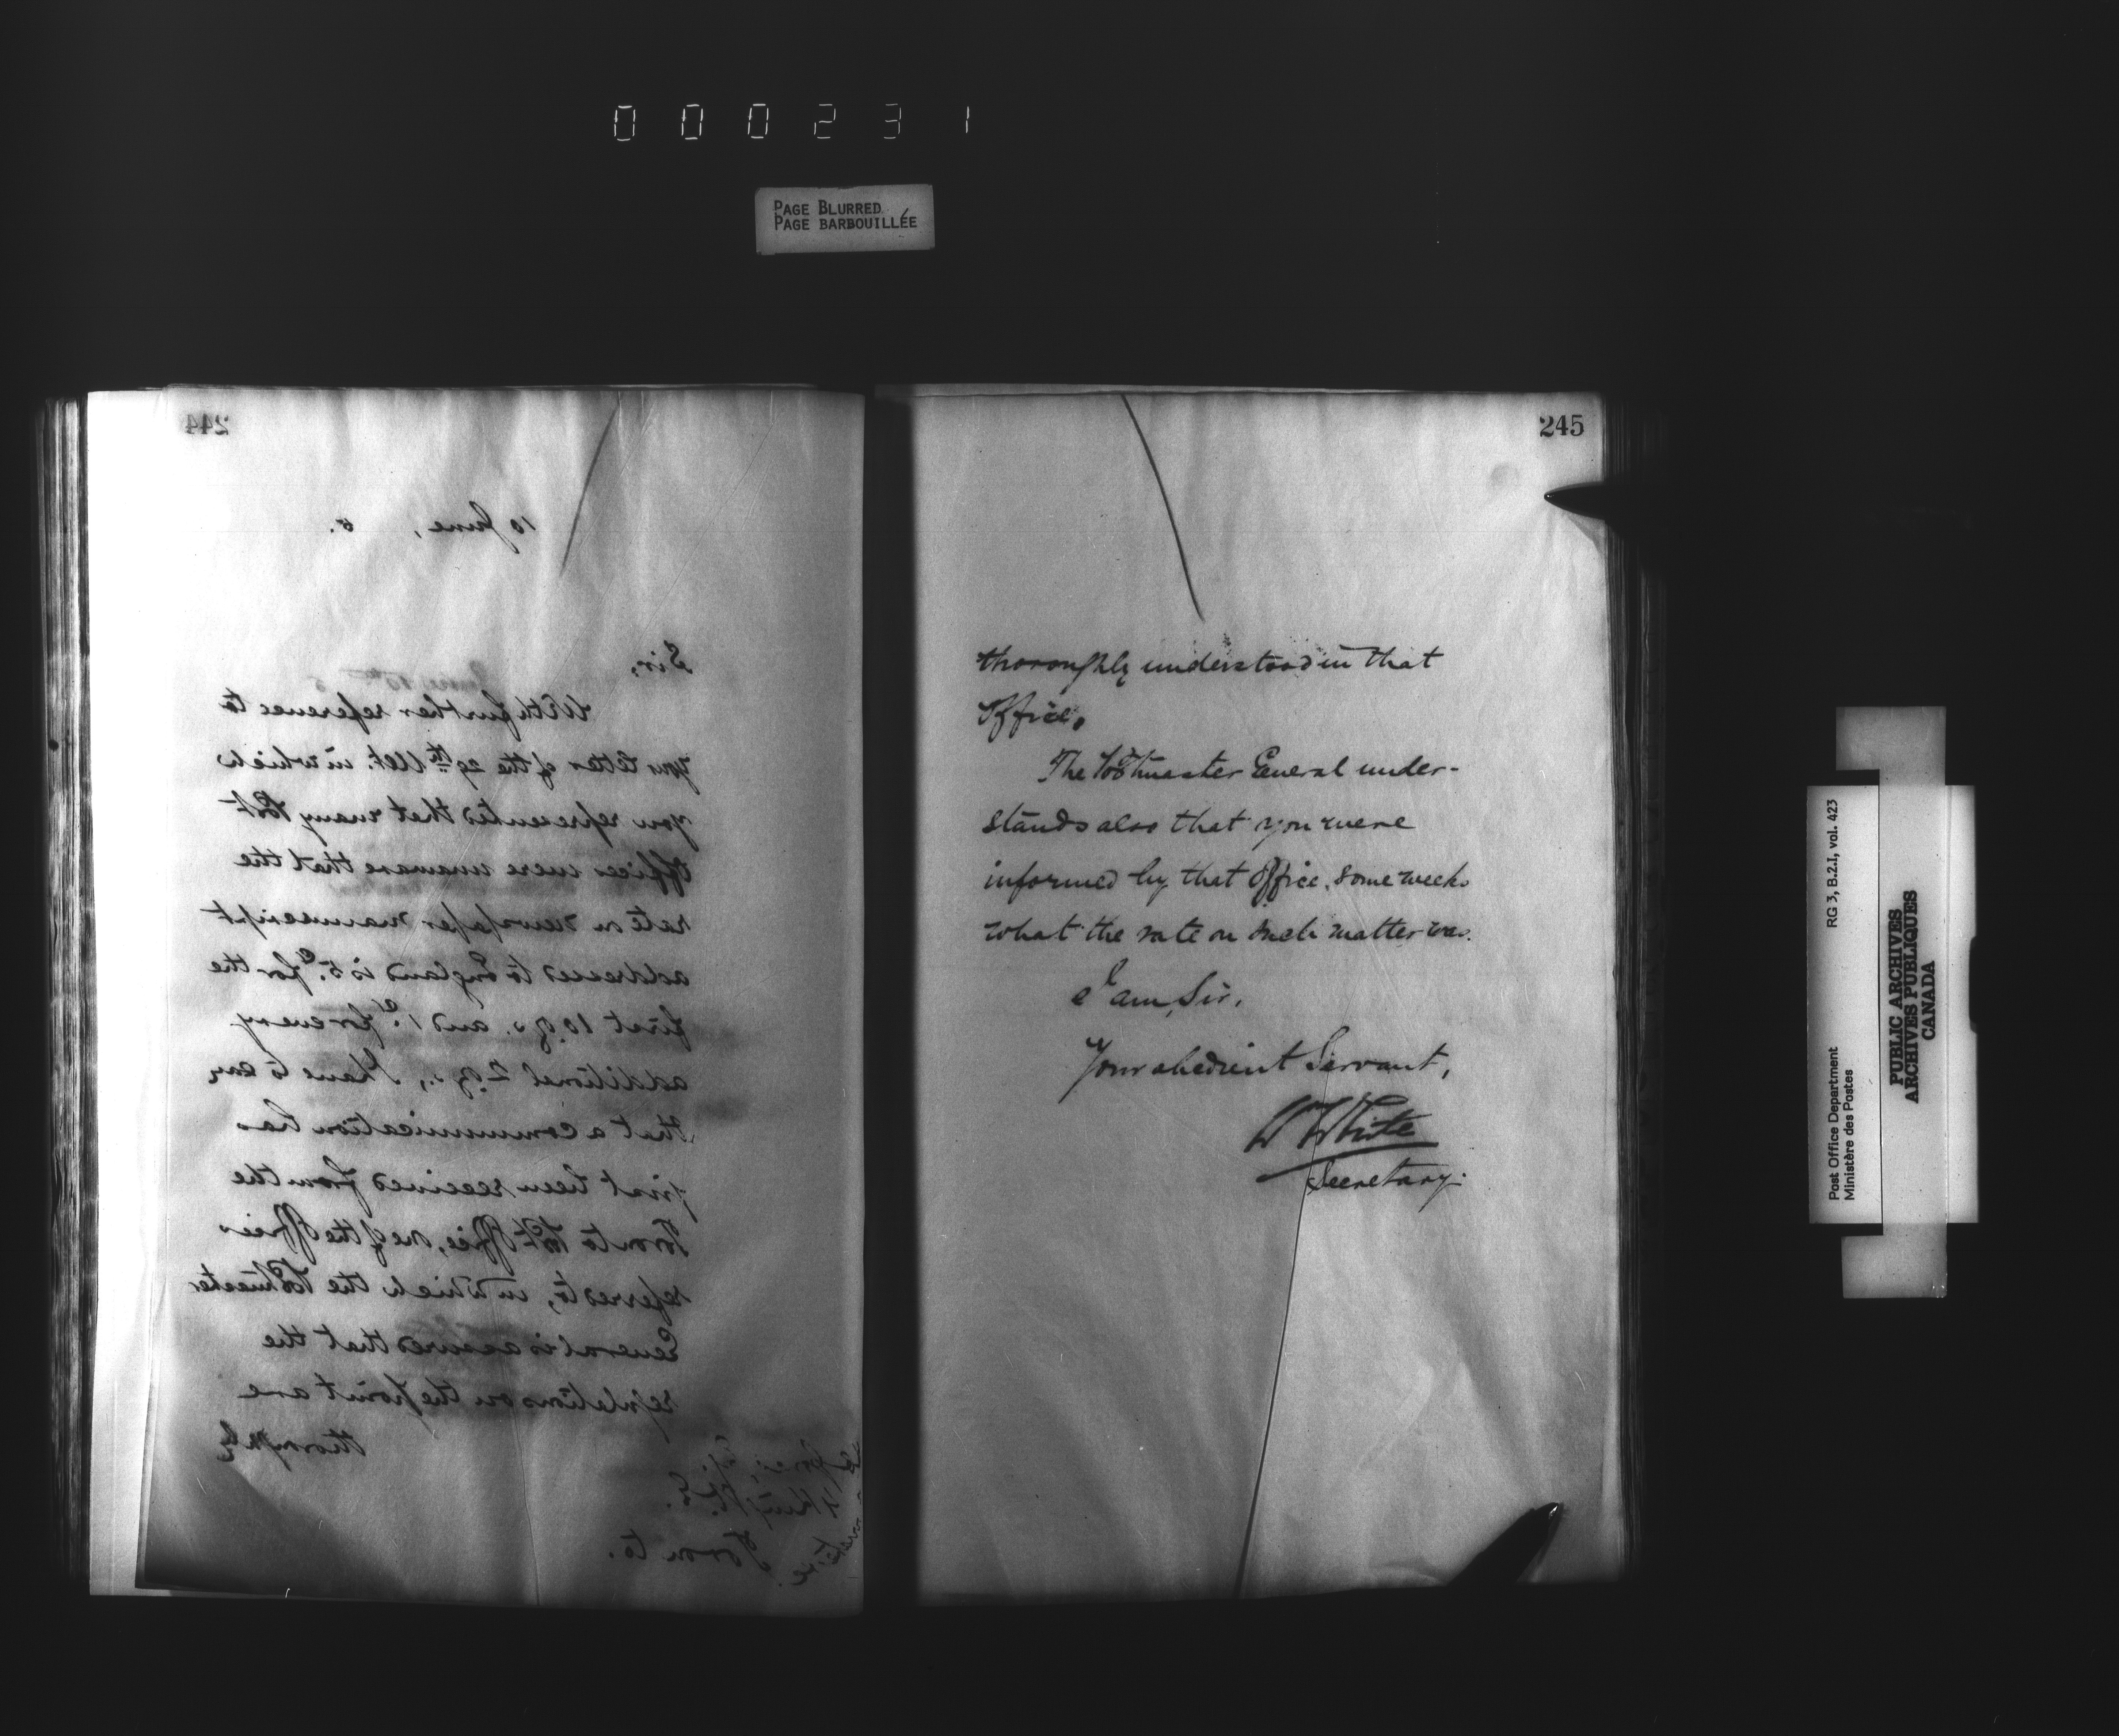 000231
PAGE BLURRED
PAGE BARBOUILLÉE
244
10 June, 6.
Sir,
With further reference to
your letter of the 29th Ult. in which
you represented that many Post
Offices were unaware that the
rate on newspaper manuscript
addressed to England is 5c. for the
first 10 ozs. and 1c. for every
additional 2 ozs., I have to say
that a communication has
just been received from the
Toronto Post Office, one of the Offices
referred to, in which the Postmaster
General is assured that the
regulations on the point are
thoroughly
Toronto.
245
thoroughly understood in that
Office.
The Postmaster General under-
stands also that you were
informed by that Office, some weeks
what the rate on such matter was.
I am, Sir,
Your obedient Servant,
W White
Secretary.
Post Office Department
Ministère des Postes
RG 3, B.2.I, vol. 423
PUBLIC ARCHIVES
ARCHIVES PUBLIQUES
CANADA